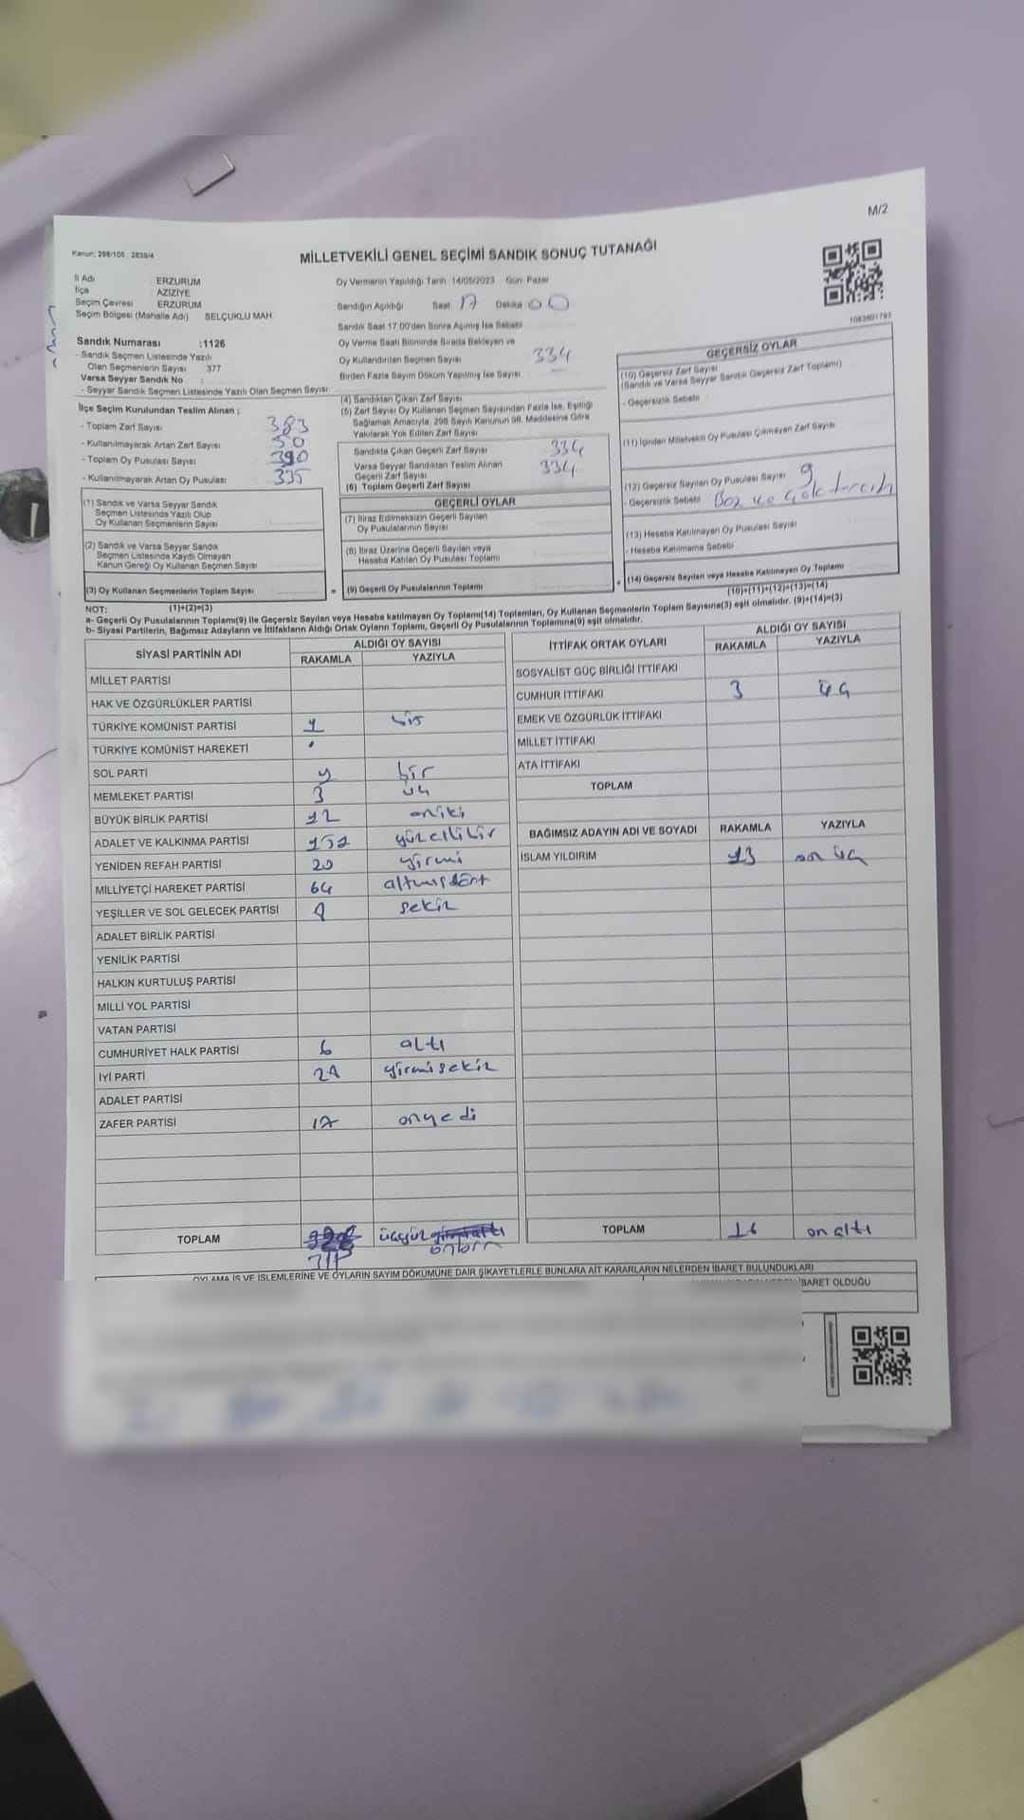 M/2
Kanun: 298/105 : 2839/4
MİLLETVEKİLİ GENEL SEÇİMİ SANDIK SONUÇ TUTANAĞI
İl Adı ERZURUM
İlçe AZİZİYE
Seçim Çevresi ERZURUM
Seçim Bölgesi (Mahalle Adı) SELÇUKLU MAH
Sandık Numarası :1126
- Sandık Seçmen Listesinde Yazılı
Olan Seçmenlerin Sayısı 377
Varsa Seyyar Sandık No :
- Seyyar Sandık Seçmen Listesinde Yazılı Olan Seçmen Sayısı:
İlçe Seçim Kurulundan Teslim Alınan ;
- Toplam Zarf Sayısı 383
- Kullanılmayarak Artan Zarf Sayısı 50
- Toplam Oy Pusulası Sayısı 390
- Kullanılmayarak Artan Oy Pusulası 335
(1) Sandık ve Varsa Seyyar Sandık
Seçmen Listesinde Yazılı Olup
Oy Kullanan Seçmenlerin Sayısı
(2) Sandık ve Varsa Seyyar Sandık
Seçmen Listesinde Kaydı Olmayan
Kanun Gereği Oy Kullanan Seçmen Sayısı
(3) Oy Kullanan Seçmenlerin Toplam Sayısı
Oy Vermenin Yapıldığı Tarih 14/05/2023 Gün Pazar
Sandığın Açıldığı Saat 17 Dakika 00
Sandık Saat 17.00'den Sonra Açılmış İse Sebebi
Oy Verme Saati Bitiminde Sırada Bekleyen ve
Oy Kullandırılan Seçmen Sayısı
Birden Fazla Sayım Döküm Yapılmış İse Sayısı
334
(4) Sandıktan Çıkan Zarf Sayısı
(5) Zarf Sayısı Oy Kullanan Seçmen Sayısından Fazla İse, Eşitliği
Sağlamak Amacıyla, 298 Sayılı Kanunun 98. Maddesine Göre
Yakılarak Yok Edilen Zarf Sayısı
Sandıkta Çıkan Geçerli Zarf Sayısı 334
Varsa Seyyar Sandıktan Teslim Alınan
Geçerli Zarf Sayısı 334
(6) Toplam Geçerli Zarf Sayısı
GEÇERLİ OYLAR
(7) İtiraz Edilmeksizin Geçerli Sayılan
Oy Pusulalarının Sayısı
(8) İtiraz Üzerine Geçerli Sayılan veya
Hesaba Katılan Oy Pusulası Toplamı
(9) Geçerli Oy Pusulalarının Toplamı
1083601791
GEÇERSİZ OYLAR
(10) Geçersiz Zarf Sayısı
(Sandık ve Varsa Seyyar Sandık Geçersiz Zarf Toplamı)
- Geçersizlik Sebebi
(11) İçinden Milletvekili Oy Pusulası Çıkmayan Zarf Sayısı
(12) Geçersiz Sayılan Oy Pusulası Sayısı 9
- Geçersizlik Sebebi Boş ve Çok tercih
(13) Hesaba Katılmayan Oy Pusulası Sayısı
- Hesaba Katılmama Sebebi
(14) Geçersiz Sayılan veya Hesaba Katılmayan Oy Toplamı
(10)+(11)+(12)+(13)=(14)
NOT: (1)+(2)=(3)
a- Geçerli Oy Pusulalarının Toplamı(9) ile Geçersiz Sayılan veya Hesaba katılmayan Oy Toplamı(14) Toplamları, Oy Kullanan Seçmenlerin Toplam Sayısına(3) eşit olmalıdır. (9)+(14)=(3)
b- Siyasi Partilerin, Bağımsız Adayların ve İttifakların Aldığı Ortak Oyların Toplamı, Geçerli Oy Pusulalarının Toplamına(9) eşit olmalıdır.
SİYASİ PARTİNİN ADI ALDIĞI OY SAYISI
RAKAMLA YAZIYLA
MİLLET PARTİSİ
HAK VE ÖZGÜRLÜKLER PARTİSİ
TÜRKİYE KOMÜNİST PARTİSİ 1 bir
TÜRKİYE KOMÜNİST HAREKETİ
SOL PARTİ bir
MEMLEKET PARTİSİ 3 üç
BÜYÜK BİRLİK PARTİSİ 12 oniki
ADALET VE KALKINMA PARTİSİ 151 yüzellibir
YENİDEN REFAH PARTİSİ 20 yirmi
MİLLİYETÇİ HAREKET PARTİSİ 64 altmışdört
YEŞİLLER VE SOL GELECEK PARTİSİ 8 sekiz
ADALET BİRLİK PARTİSİ
YENİLİK PARTİSİ
HALKIN KURTULUŞ PARTİSİ
MİLLİ YOL PARTİSİ
VATAN PARTİSİ
CUMHURİYET HALK PARTİSİ 6 altı
İYİ PARTİ 28 yirmisekiz
ADALET PARTİSİ
ZAFER PARTİSİ 17 onyedi
TOPLAM üçyüz
İTTİFAK ORTAK OYLARI ALDIĞI OY SAYISI
RAKAMLA YAZIYLA
SOSYALİST GÜÇ BİRLİĞİ İTTİFAKI
CUMHUR İTTİFAKI 3 üç
EMEK VE ÖZGÜRLÜK İTTİFAKI
MİLLET İTTİFAKI
ATA İTTİFAKI
TOPLAM
BAĞIMSIZ ADAYIN ADI VE SOYADI RAKAMLA YAZIYLA
İSLAM YILDIRIM 13 on üç
TOPLAM 16 on altı
OYLAMA İŞ VE İŞLEMLERİNE VE OYLARIN SAYIM DÖKÜMÜNE DAİR ŞİKAYETLERLE BUNLARA AİT KARARLARIN NELERDEN İBARET BULUNDUKLARI
İBARET OLDUĞU